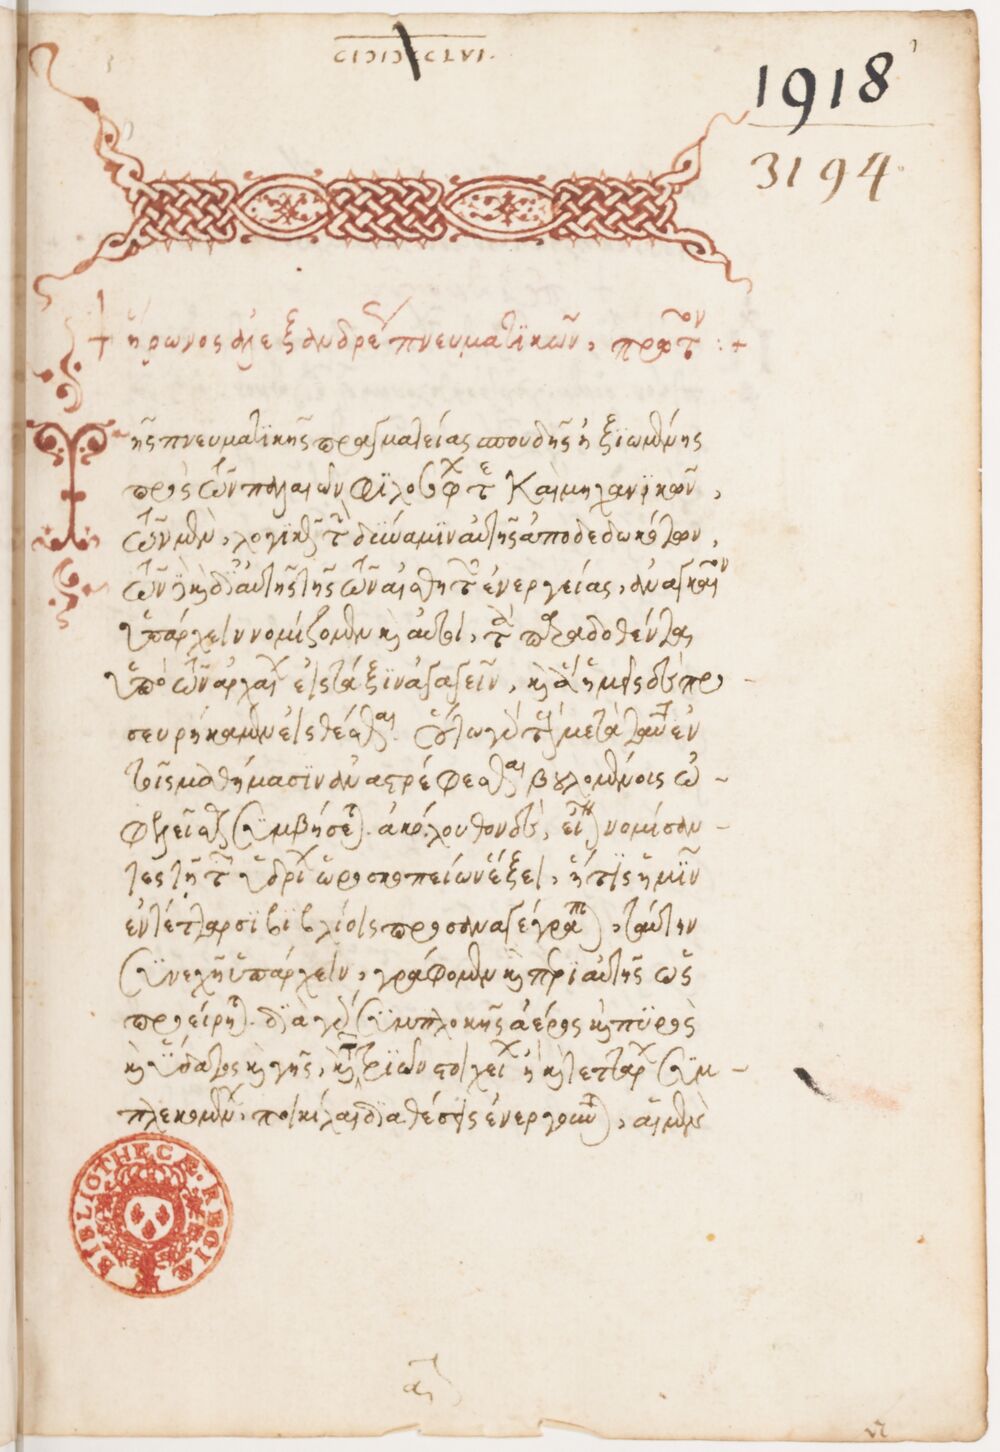 CIƆIƆCCLVI.
1918
3194
+ ἥρωνος ἀλεξανδρέ πνευματικῶν, πρῶτον :+
Τῆς πνευματικῆς πραγματείας σπουδῆς ἠξιωμένης
πρὸς τῶν παλαιῶν φιλοσόφ τε καὶ μηχανικῶν,
τῶν μὲν, λογικῶς τὴν δύναμιν αὐτῆς ἀποδεδωκότων,
τῶν δὲ καὶ δι' αὐτῆς τῆς τῶν αἰσθητῶν ἐνεργείας, ἀναγκαῖον
ὑπάρχειν νομίζομεν καὶ αὐτοὶ, τὰ παραδοθέντα
ὑπὸ τῶν ἀρχαί εἰς τάξιν ἀγαγεῖν, καὶ ἃ ἡμεῖς δὲ προ-
σευρήκαμεν εἰσθέσθαι. οὕτως γὰρ τοὺς μετὰ ταῦτα ἐν
τοῖς μαθήμασιν ἀναστρέφεσθαι βουλομένοις ὠ-
φελεῖσθαι συμβήσεται. ἀκόλουθον δὲ, εἶναι νομίσαν-
τες τῇ τῶν ὑδρί ὡροσκοπείων ἕξει, ἥτις ἡμῖν
ἐν τέτταρσι βιβλίοις προσαναγέγραπται, ταύτην
συνεχῆ ὑπάρχειν, γράφομεν καὶ περὶ αὐτῆς ὡς
προείρηται. διὰ γὰρ συμπλοκῆς ἀέρος καὶ πυρὸς
καὶ ὕδατος καὶ γῆς, καὶ τῶν τριῶν στοιχεί ἢ καὶ τεττάρ συμ-
πλεκομένων, ποικίλαι διαθέσεις ἐνεργοῦνται, αἱ μὲν
BIBLIOTHECÆ REGIÆ